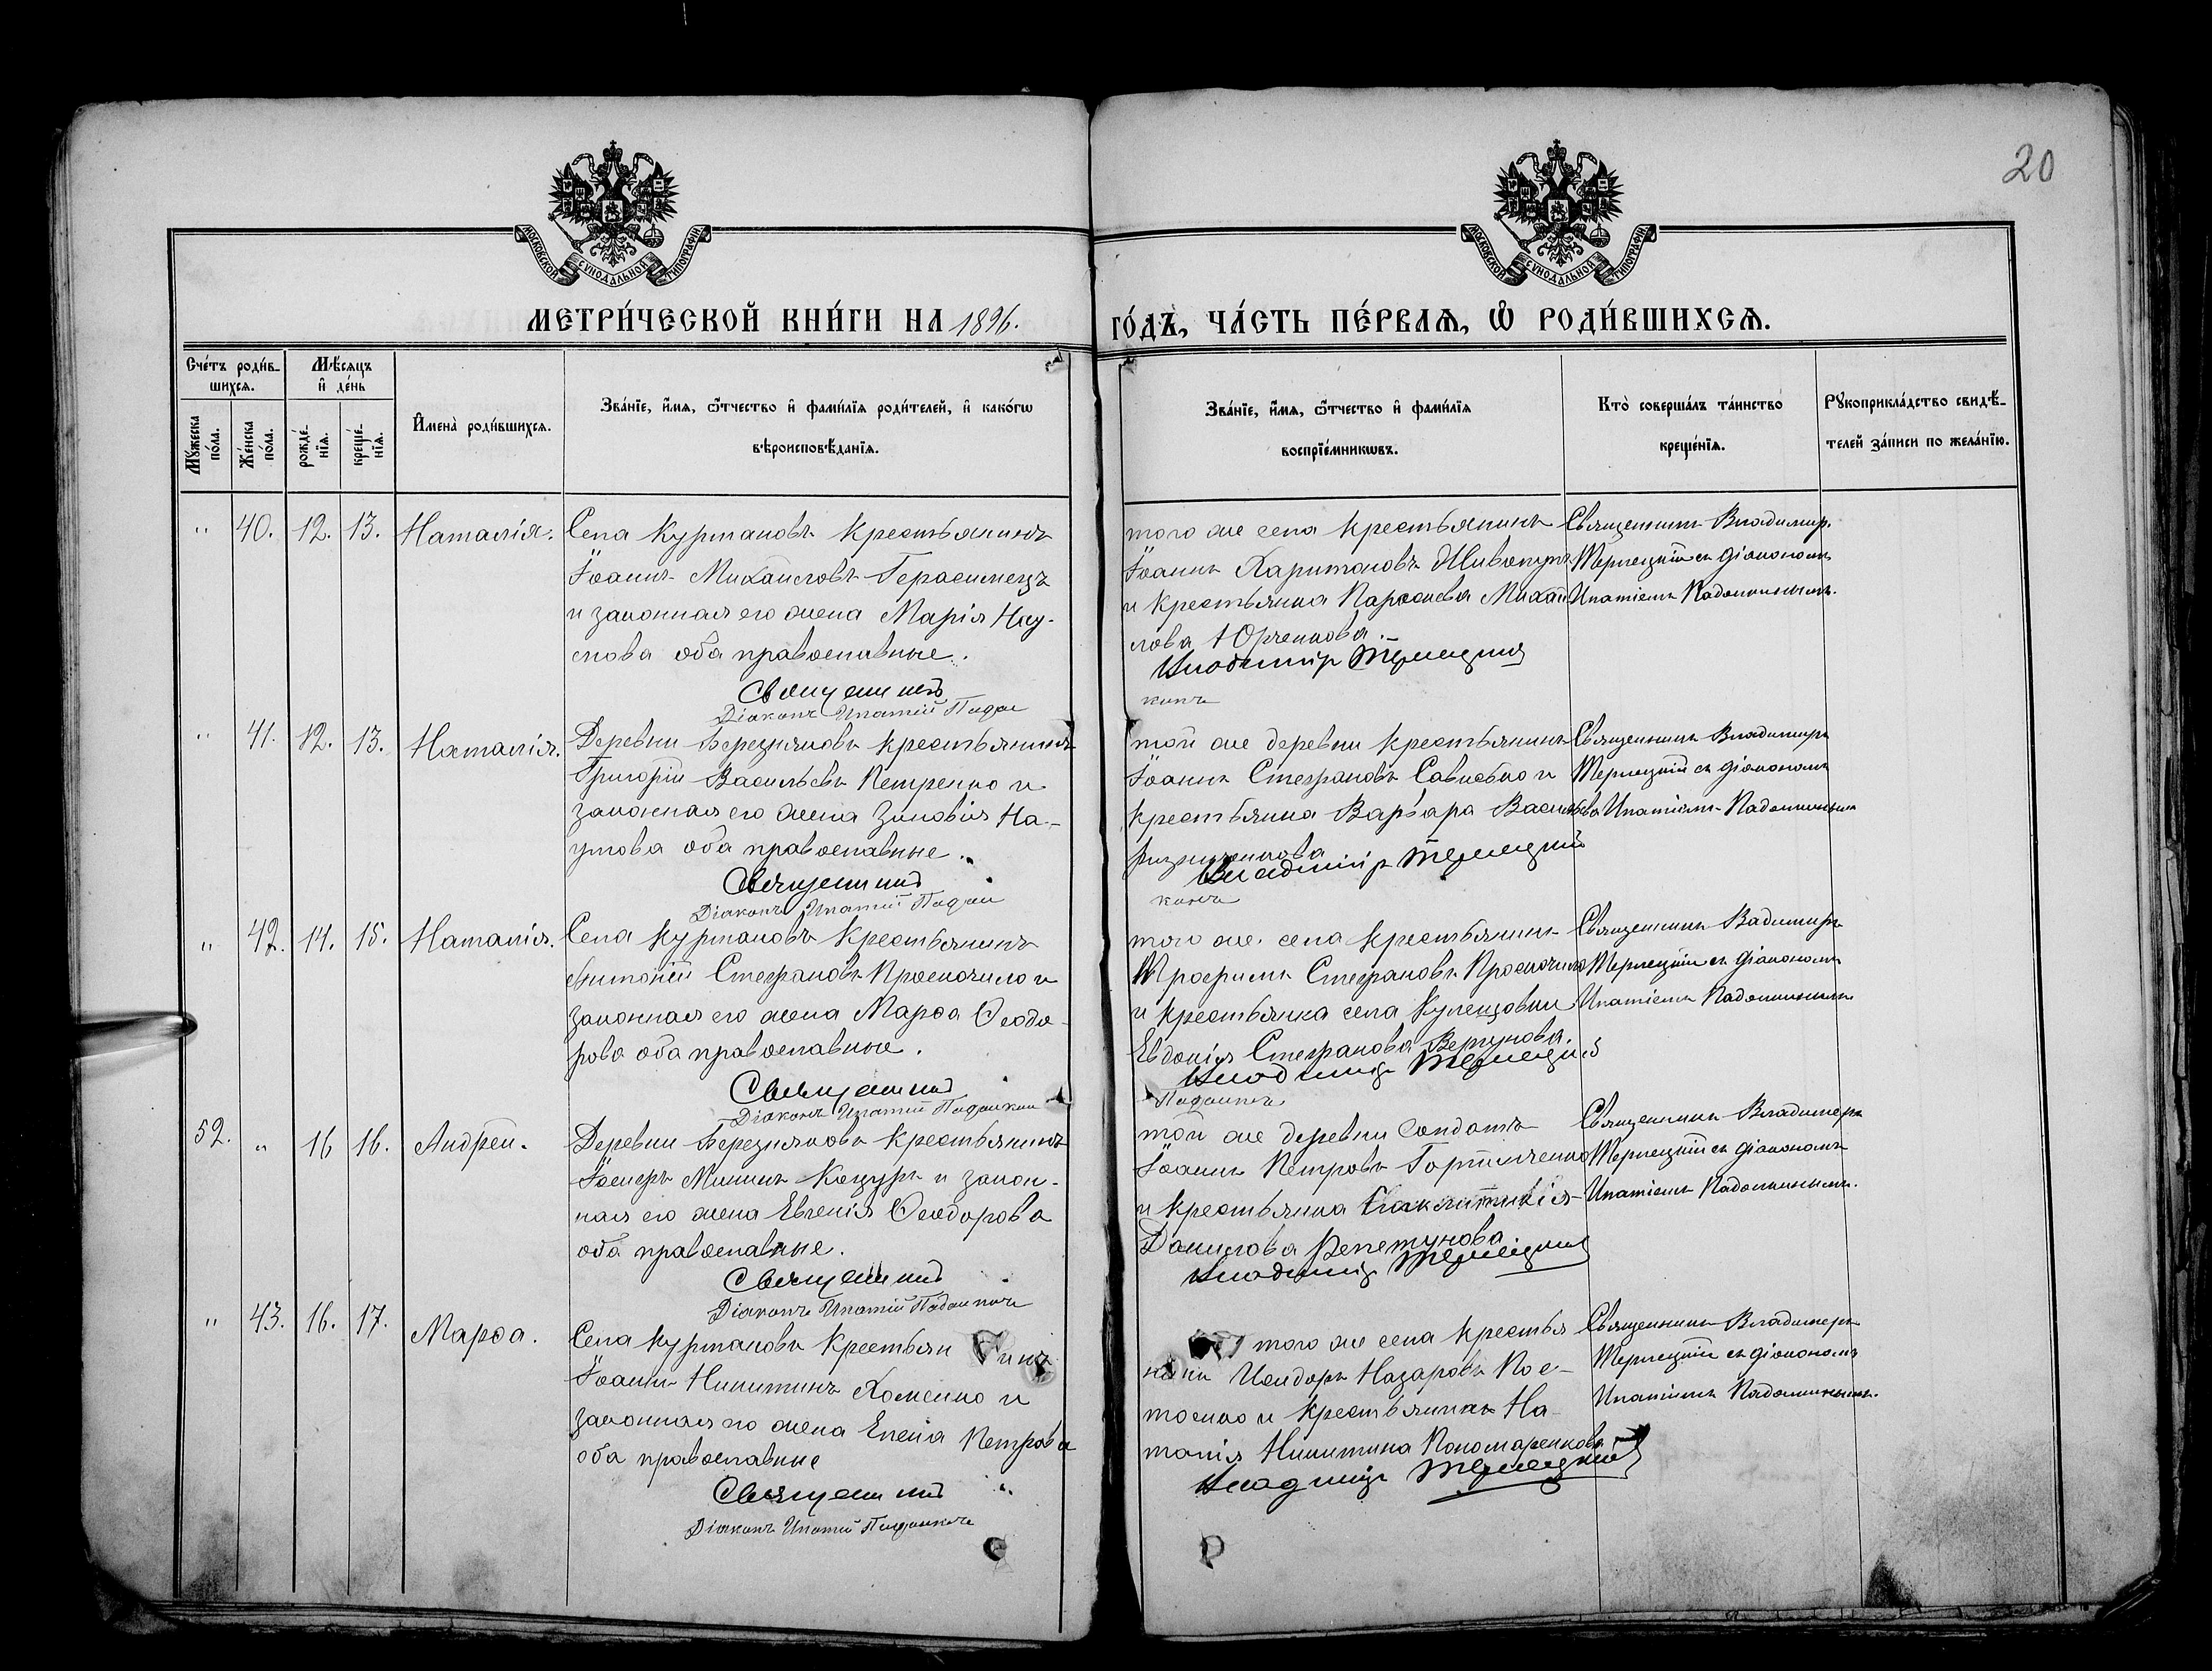 20
МОСКОВСКОЙ СѴНОДАЛЬНОЙ ТИПОГРАФІИ
МОСКОВСКОЙ СѴНОДАЛЬНОЙ ТИПОГРАФІИ
МЕТРИ́ЧЕСКОЙ КНИ́ГИ НА 1896.
ГО́ДЪ, ЧА́СТЬ ПЕ́РВАѦ, Ѡ҆ РОДИ́ВШИХСѦ.
Сче́тъ роди́в-
шихсѧ.
Мꙋ́жеска по́ла.
Же́нска по́ла.
Мѣ́сѧцъ
и҆ де́нь
рожде́-нїѧ.
креще́-нїѧ.
И҆мена̀ роди́вшихсѧ.
Зва́нїе, и҆́мѧ, ѻ҆́тчество и҆ фами́лїѧ роди́телей, и҆ како́гѡ
вѣроисповѣ́данїѧ.
Зва́нїе, и҆́мѧ, ѻ҆́тчество и҆ фами́лїѧ
воспрїе́мникѡвъ.
Кто̀ соверша́лъ та́инство
креще́нїѧ.
Рꙋкоприкла́дство свидѣ́-
телей за́писи по жела́нїю.
" 40. 12. 13. Наталія.
Села Курмановъ крестьянинъ
Іоаннъ Михайловъ Герасимецъ
и законная его жена Марія Нау-
мова оба православные.
Священникъ
Діаконъ Ипатій Падал
того же села крестьянинъ
Іоаннъ Харитоновъ
и крестьянка Параскева Михай
лова Юрченкова.
Владиміръ Терлецкій
кинъ
Священникъ Владимір
Терлецкій съ діакономъ
Ипатіемъ Падалкинымъ.
" 41. 12. 13. Наталія.
Деревни Березняковъ крестьянинъ
Григорій Васильевъ Петренко и
законная его жена Зиновія На-
умова оба православные.
Священникъ
Діаконъ Ипатій Падал
той же деревни крестьянинъ
Іоаннъ Стефановъ и
крестьянка Варвара Васильева
Владиміръ Терлецкій
кинъ
Священникъ Владиміръ
Терлецкій съ діакономъ
Ипатіемъ Падалкинымъ
" 42. 14. 15. Наталія.
Села Курмановъ крестьянинъ
Антоній Стефановъ Проскочило и
законная его жена Марѳа Ѳеодо-
рова оба православные.
Священникъ
Діаконъ Ипатій Падалкин
того же села крестьянинъ
Трофимъ Стефановъ Проскочило
и крестьянка села
Евдокія Стефанова
Владиміръ Терлецкій
Священникъ Вадиміръ
Терлецкій съ діакономъ
Ипатіемъ Падалкинымъ
52. " 16 16. Андрей.
Деревни Березняковъ крестьянинъ
Іосифъ Мининъ Коцуръ и закон-
ная его жена Евгенія Ѳеодорова
оба православные.
Священникъ
Діаконъ Ипатій Падалкинъ
той же деревни Солдатъ
Іоаннъ Петровъ
и крестьянка
Данилова
Владиміръ Терлецкій
Священникъ Владимеръ
Терлецкій съ діакономъ
Ипатіемъ Падалкинымъ.
" 43. 16. 17. Марѳа.
Села Курмановъ крестьян инъ
Іоаннъ Никитинъ Хоменко и
законная его жена Елена Петрова
оба православные
Священникъ
Діаконъ Ипатій Падалкинъ
того же села крестья
нинъ Исидоръ Назаровъ Кос-
тенко и крестьянка На-
талія Никитина Пономаренкова
Владиміръ Терлецкій
Священникъ Владимеръ
Терлецкій съ діакономъ
Ипатіемъ Падалкинымъ.